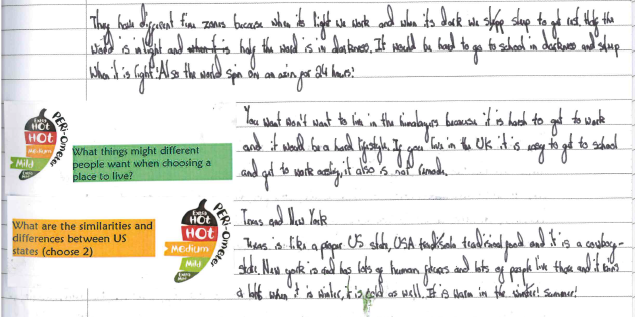 They have different time zones because when its light we work and when its dark we stop sleep to get rest. Half the
world is in light and when it is half the world is in darkness. It would be hard to go to school in darkness and sleep
when it is light. Also the world spin on an axis for 24 hours!
You want won't want to live in the himalayas because it is harsh to get to work
and it would be a hard lifestyle. If you live in the UK it is easy to get to school
and get to work easily, it also is not remote.
PERi-Ometer
Extra
HOT
HOT
Medium
Mild
Extra
Mild
What things might different
people want when choosing a
place to live?
Texas and New York
Texas is like a proper US state, USA traditional food and it is a cowboy-
state. New york is and has lots of human and lots of people live there and it rains
a lot when it is winter, it is cold as well. It is warm in the winter! summer!
What are the similarities and
differences between US
states (choose 2)
PERi-Ometer
Extra
HOT
HOT
Medium
Mild
Extra
Mild